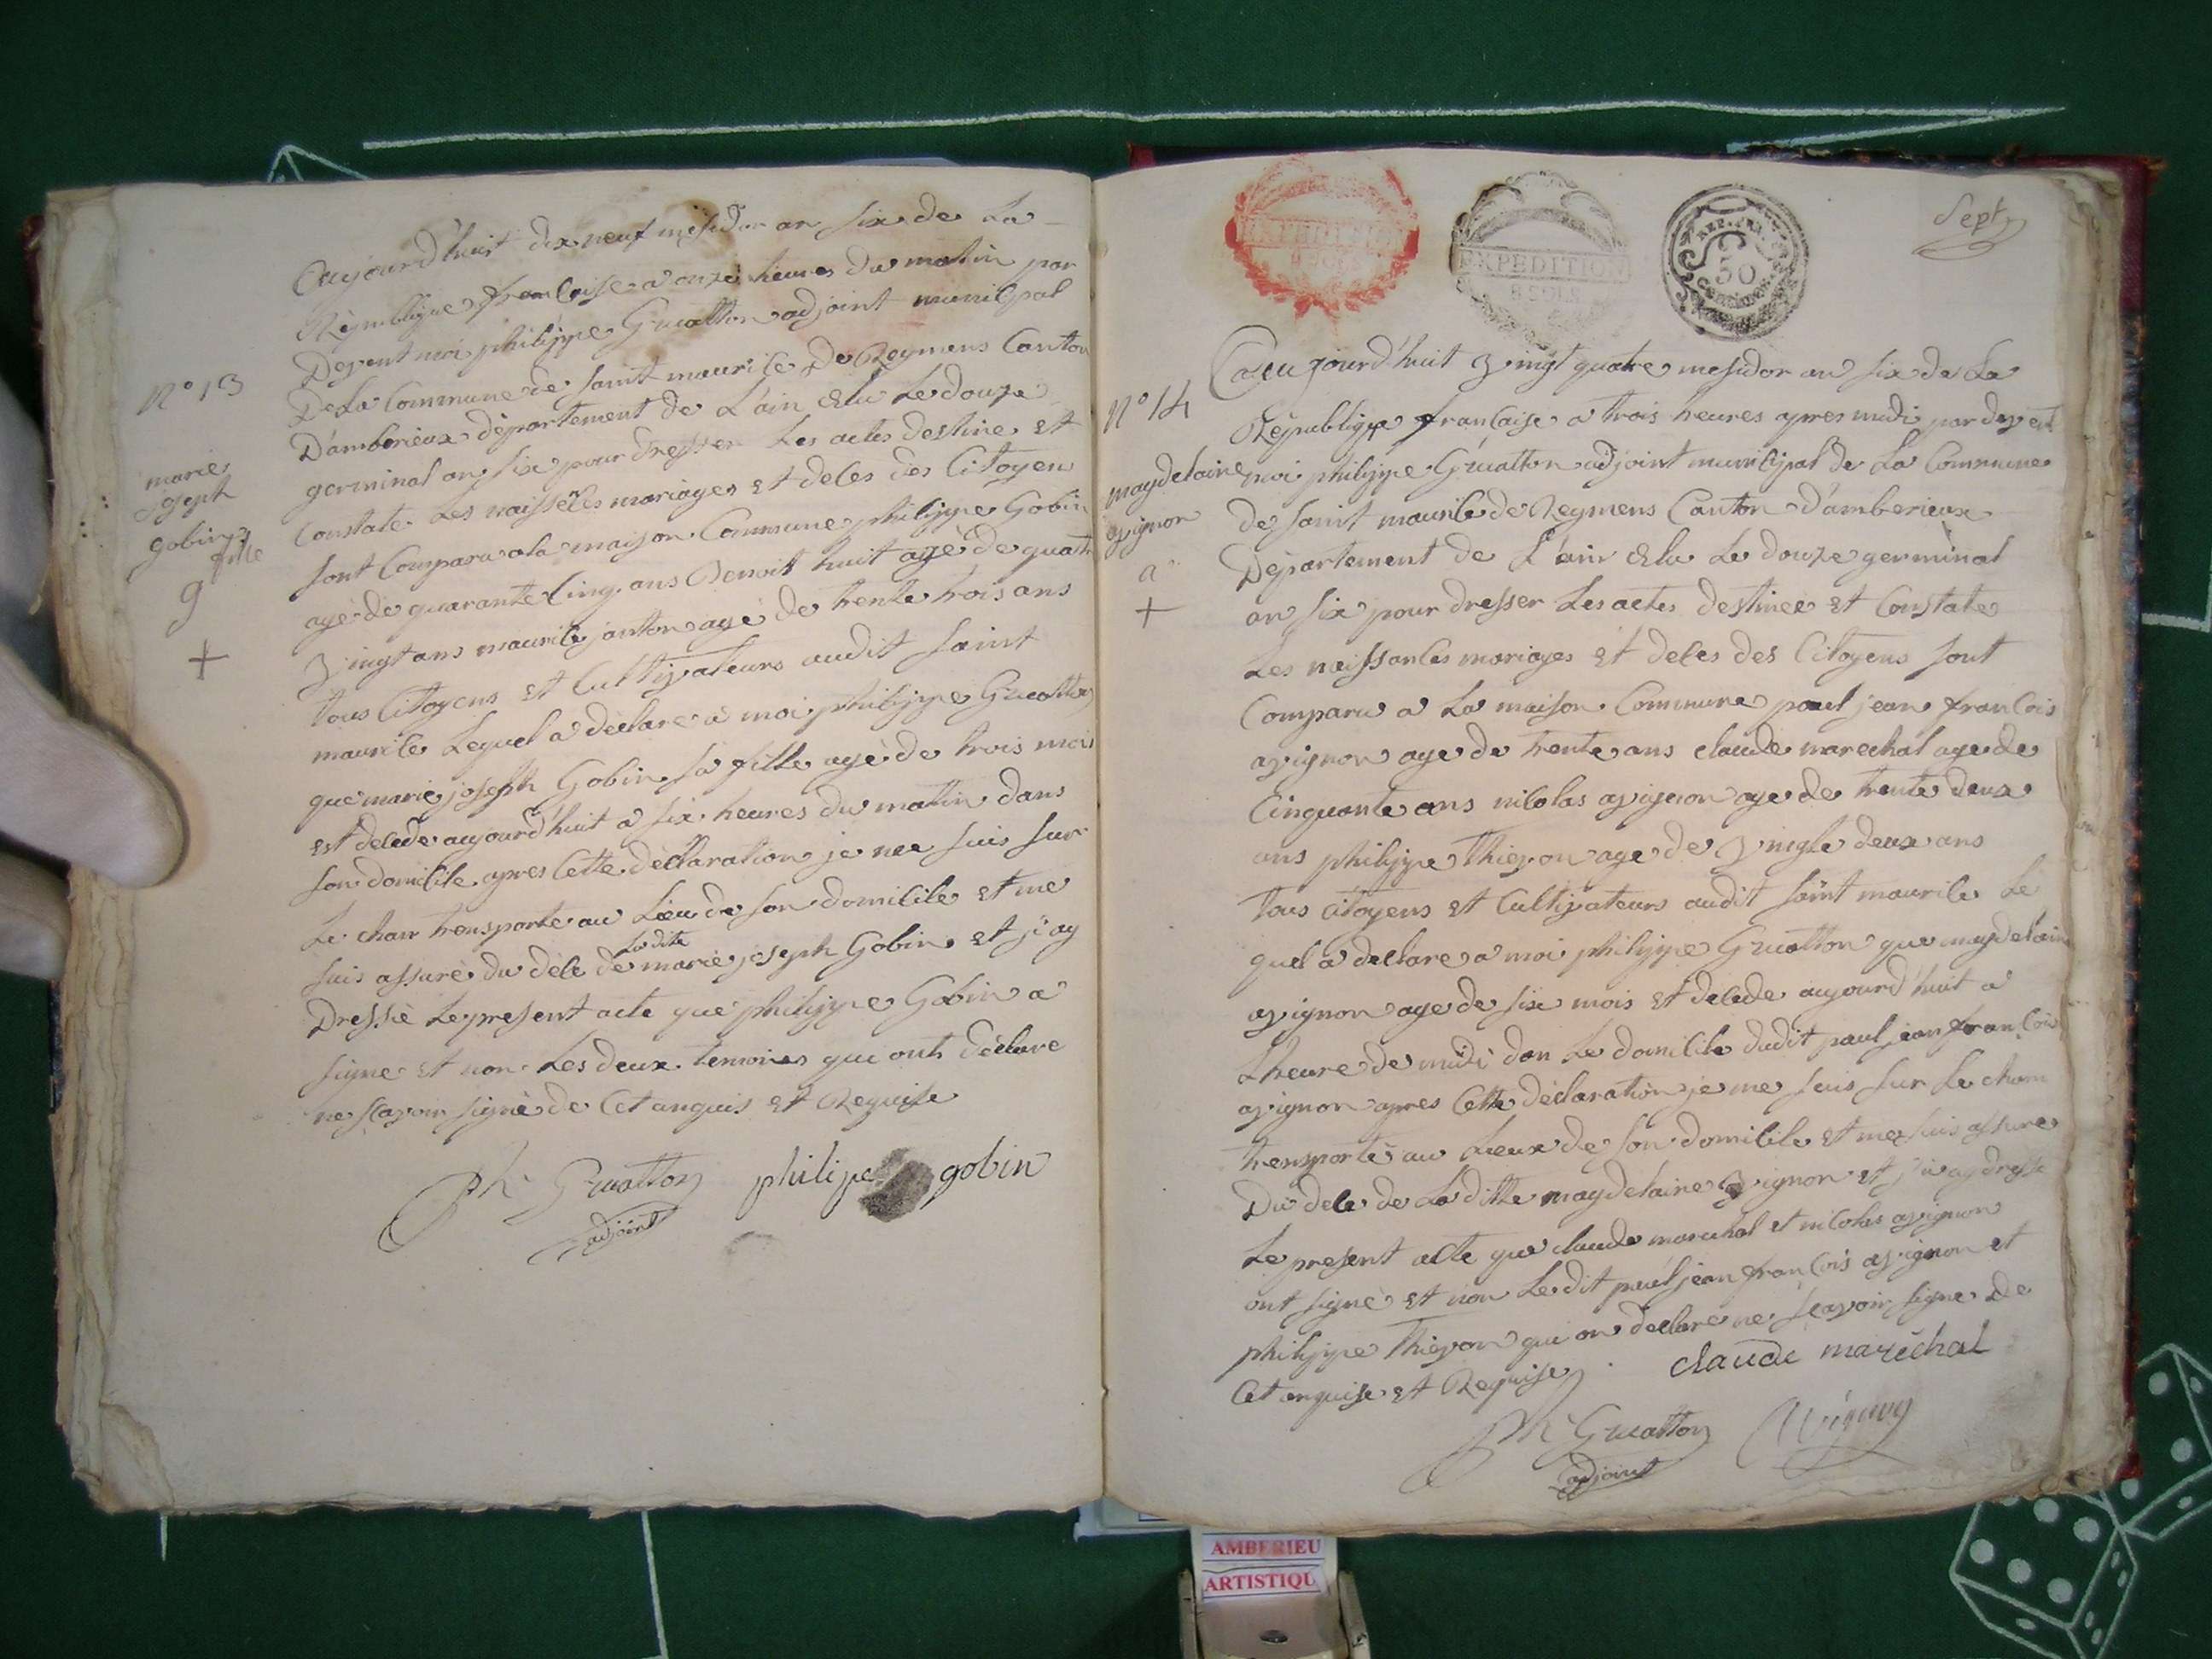 aujourd'huit dix neuf mesidor an six de La
Republique francaise a onze heures du matin par
Devent moi philippe Gruatton adjoint municipal
De La Commune de saint maurice De Reymens Canton
D'amberieux departement de L'ain Elu Le douze
germinal an six pour dresser Les actes destine et
Constate Les naissces mariages et deces des Citoyen
sont Comparu a la maison Commune philippe Gobin
agé de quarante Cinq ans Benoit huit agé de quatre
vingt ans maurice janton agé de trente trois ans
tous Citoyens et Cultivateurs audit saint
maurice Lequel a déclaré a moi philippe Gruatton
que marie joseph Gobin sa fille agé de trois mois
est decede aujourd'huit a six heures du matin dans
son domicile apres Cette déclaration je me suis sur
Le cham transporte au Lieu de son domicile et me
suis assuré du déce de La dite marie joseph Gobin et j'ay
Dressé Le present acte que philippe Gobin a
signe et non Les deux temoins qui ont déclare
ne scavoir signé de Cet anquis et Requise
Ph Gruatton philipe gobin
adjoint
N° 13
marie
joseph
gobin
fille
9
+
EXPEDITION
EXPEDITION
8 SOLS
REP. FRA.
50
centimes
Sept
aujourd'huit vingt quatre mesidor an six de La
Republique francaise a trois heures apres midi par devent
moi philippe Gruatton adjoint municipal de La Commune
de saint maurice de Reymens Canton D'amberieux
Département de L'ain Elu Le douze germinal
an six pour dresser Les actes destinée et Constate
Les naissances mariages et deces des Citoyens sont
Comparu a La maison Commune paul jean francois
avignon age de trente ans claude marechal age de
Cinquante ans nicolas avignon age de trente deux
ans philippe Thievon age de vingte deux ans
tous citoyens et Cultivateurs audit saint maurice Le
quel a declare a moi philippe Gruatton que maydelaine
avignon age de six mois et decede aujourd'huit a
L'heure de midi dan Le domicile dudit paul jean francois
avignon apres Cette déclaration je me suis sur Le cham
transporté au Lieux de son domicile et me suis assure
Du dece de La ditte maydelaine avignon et j'ai ay dresse
Le present acte que claude marechal et nicolas avignon
ont signé et non Le dit paul jean francois avignon et
philippe Thievon qui on déclaré ne scavoir signe de
Cet enquise et Requise claude maréchal
Ph Gruatton
adjoint
N° 14
maydelaine
avignon
a
+
AMBERIEU
ARTISTIQU